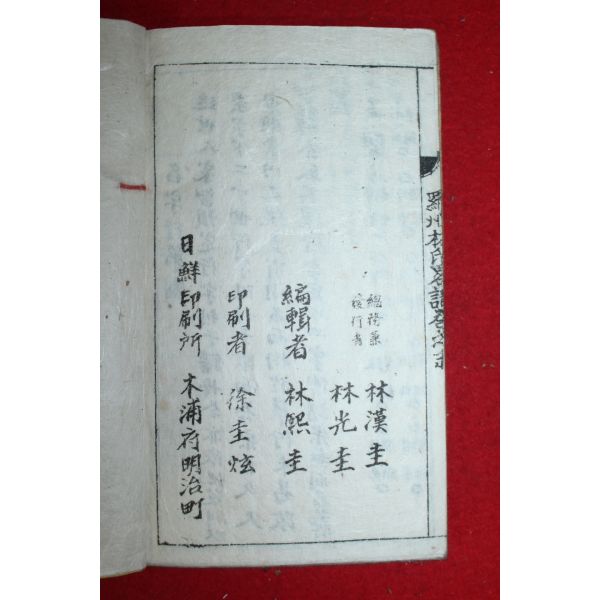 羅州林氏
總務兼 林漢圭
發行者 林光圭
編輯者 林熙圭
印刷者 徐圭炫
日鮮印刷所 木浦府明治町